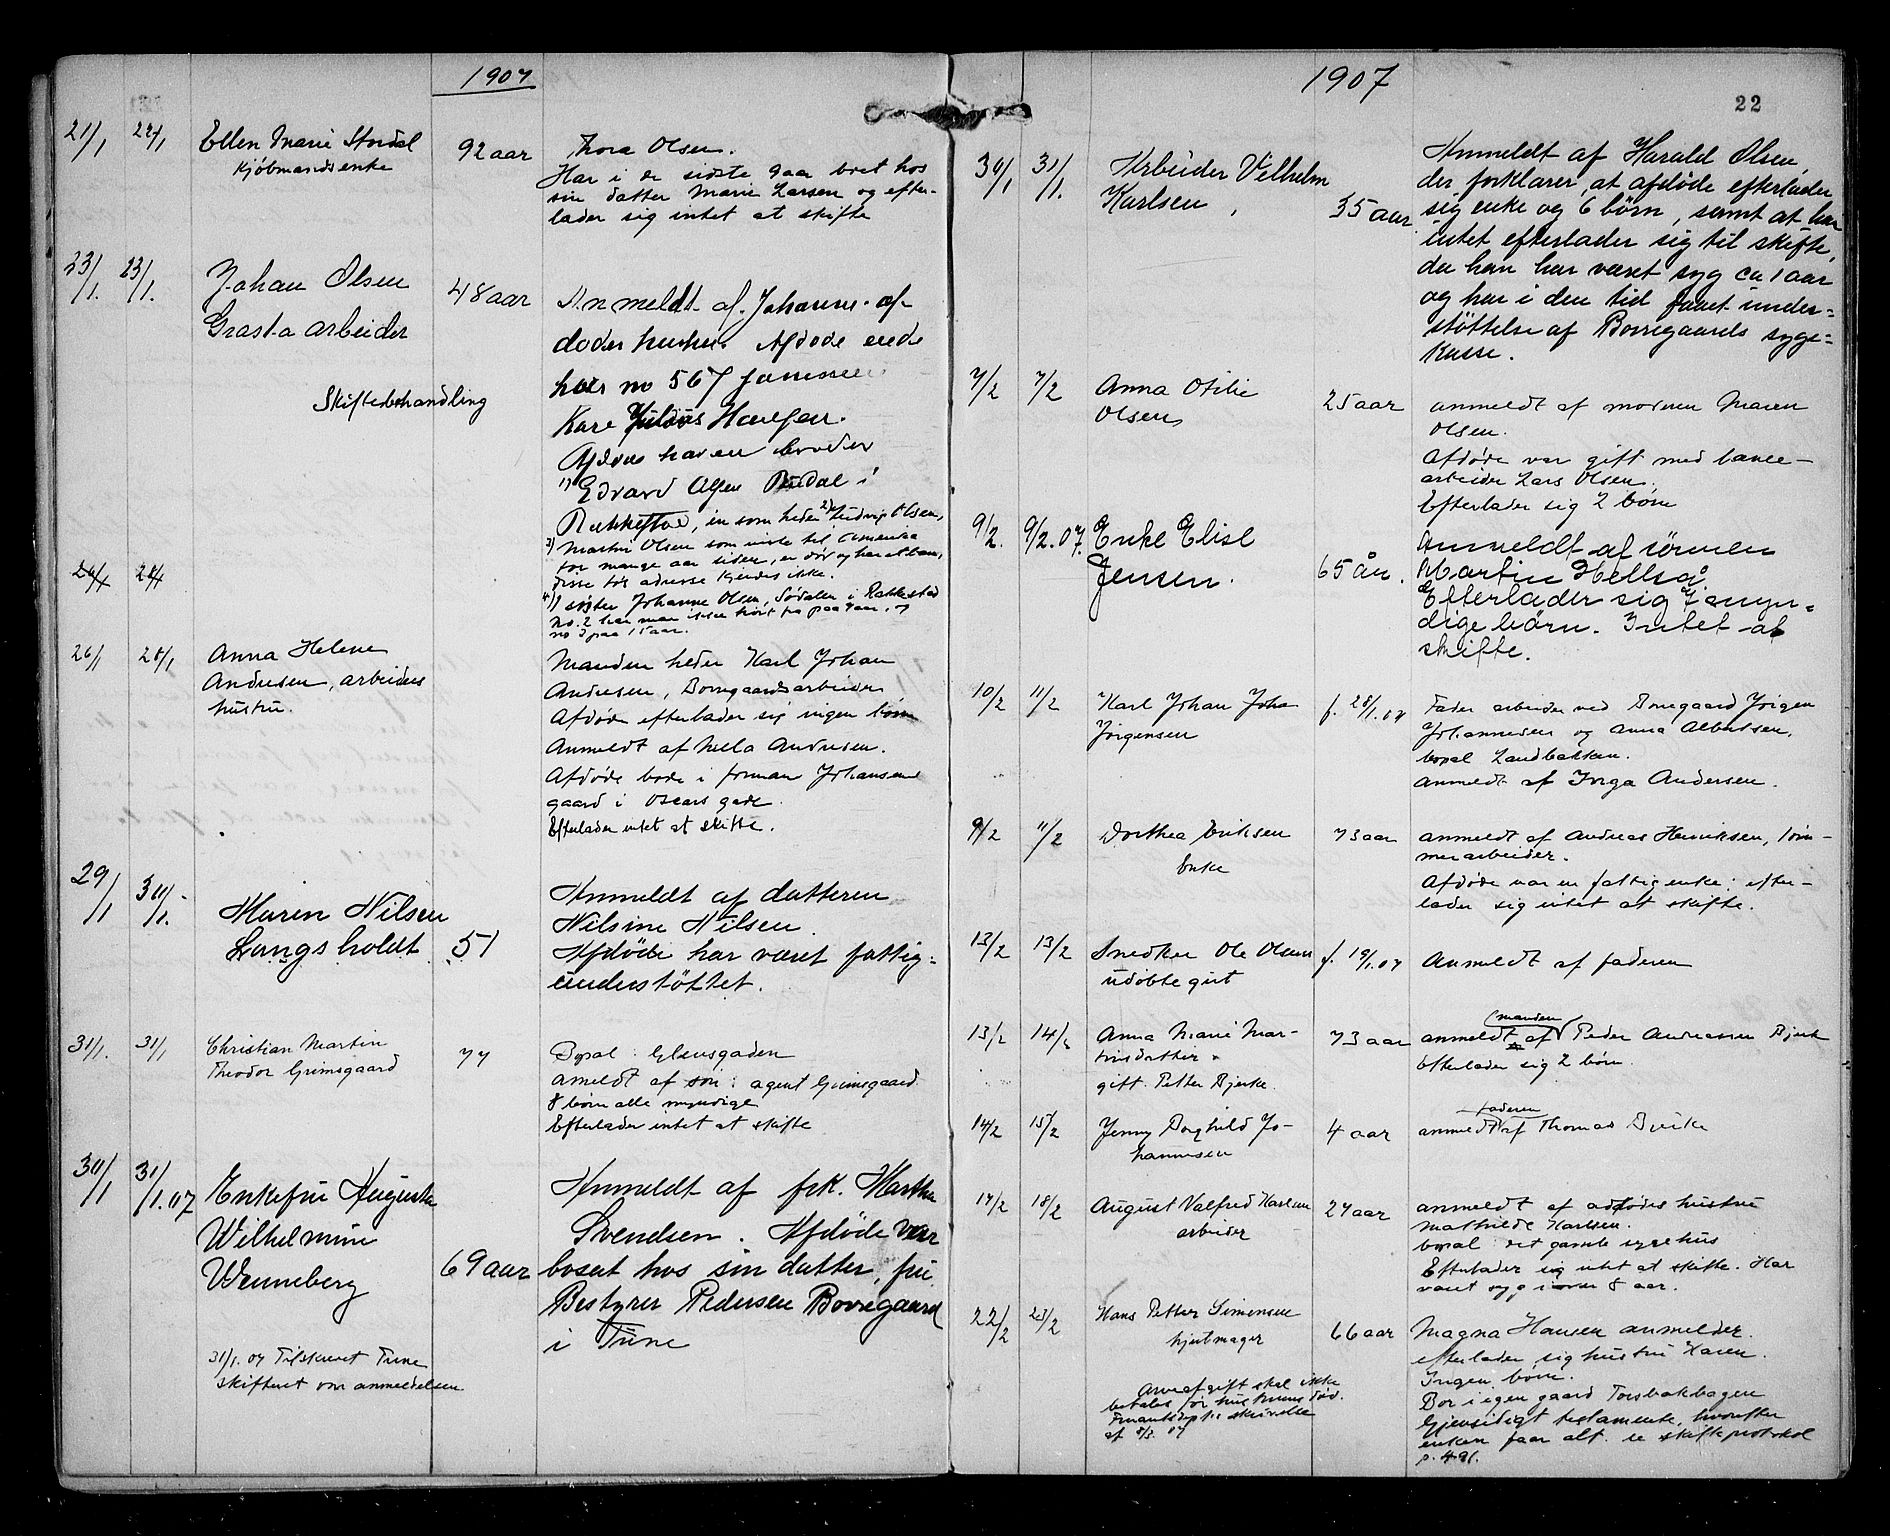 1907
21/1 22/1 Ellen Marie Stordal 92 aar Thora Olsen.
Kjøbmandsenke
Har i de sidste 9 aar boet hos
sin datter Marie Larsen og efter-
lader sig intet at skifte
23/1. 23/1. Johan Olsen 48 aar Anmeldt af Johanne. af-
Graata arbeider
dødes hushus Afdøde eiede
hus no 567
Skiftebehandling
Kare Julius Haugen.
Afdøde har en broder
1) Edvard Olsen i
Rakkestad, en som heder 2) Ludvig Olsen,
3) Martin Olsen som reiste til Amerika
for mange aar siden, en død og har et barn,
disse to's adresse kjendes ikke.
4) 1 søster Johanne Olsen, Sødalen i Rakkestad
No. 2 har man ikke hørt fra paa 9 aar, og
no 3 paa 15 aar.
26/1 28/1
26/1 28/1 Anna Helene
Andresen, arbeiders
hustru.
Manden heder Karl Johan
Andresen, Borregaardsarbeider
Afdøde efterlader sig ingen børn
Anmeldt af Mela Andresen.
Afdøde bode i formand Johansens
gaard i Oscars gade.
Efterlader intet at skifte.
29/1 30/1. Maren Nilsen
Langsholdt 51
Anmeldt af datteren
Nilsine Nilsen.
Afdøde har været fattig-
understøttet.
31/1. 31/1 Christian Martin
Theodor Grimsgaard 77
Bopæl: Glengsgaden
Ameldt af søn: agent Grimsgaard
8 børn alle myndige
Efterlader intet at skifte
30/1 31/1.07 Enkefru Augusta
Wilhelmine
Wenneberg 69 aar
Anmeldt af frk. Martha
Svendsen. Afdøde var
bosat hos sin datter, fru
Bestyrer Pedersen Borregaard
i Tune
31/1. 07 Tilskrevet Tune
skifteret om anmeldelsen
1907
22
30/1 31/1. Arbeider Vilhelm
Karlsen, 35 aar.
Anmeldt af Harald Olsen,
der forklarer, at afdøde efterlader
sig enke og 6 børn, samt at han
intet efterlader sig til skifte,
da han har været syg ca 1 aar
og har i den tid faaet under=
støttelse af Borregaards syge=
kasse.
7/2 7/2 Anna Otilie
Olsen 25 aar
anmeldt af moderen Maren
Olsen.
Afdøde var gift med
arbeider Lars Olsen.
Efterlader sig 2 børn
9/2. 9/2.07. Enke Elise
Jensen. 65 år.
Anmeldt af sønnen
Martin Hellså.
Efterlader sig 7 myn=
dige børn. Intet at
skifte.
10/2 11/2 Karl Johan Joha
Jørgensen f. 28/1.07
Fader arbeider ved Borregaard Jørgen
Johannesen og Anna Albertsen,
bopæl Sandbakken.
anmeldt af Inga Andersen.
9/2 11/2 Dorthea Eriksen 73 aar
Enke
anmeldt af Andreas Henriksen, tøm-
merarbeider.
Afdøde var en fattig enke; efter-
lader sig intet at skifte.
13/2 13/2 Snedker Ole Olsens f. 19/1.07 Anmeldt af faderen
udøbte gut
13/2 14/2 Anna Marie Mar-
tinsdatter
gift. Petter Bjerke. 73 aar
manden
anmeldt af Peder Andreassen Bjerke
Efterlader sig 2 børn.
14/2 15/2 Jenny Borghild Jo-
hannesen 4 aar
faderen
anmeldt af Thomas
17/2 18/2 August Valfred Karlsen 27 aar
arbeider
anmeldt af afdødes hustru
Mathilde Karlsen.
bopæl: det gamle sygehus
Efterlader sig intet at skifte. Har
været syg i over 8 aar.
22/2 23/2 Hans Petter Simensen
hjulmager 66 aar
Magna Hansen anmelder.
efterlader sig hustru Karen.
Ingen børn.
Bor i egen gaard Torsbakbagen
Gjensidigt testamente, hvorefter
enken faar alt. se skifteprotokol
p. 491.
Arveafgift skal ikke
betales før hustruens død.
Finantsdept's skrivelse
af 8/3. 07